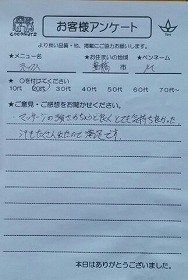 お客様アンケート
より良い品質・他、掲載にご協力お願いします。
★メニュー名 ★お住まいの地域 ★ペンネーム
豊橋 市 M
★ ○を付けてください
10代 20代 30代 40代 50代 60代 70代～
★ご意見・ご感想をお聞かせください。
マッサージの強さがちょうど良く とても気持ち良かった
汗もたくさん出たので 満足です。
本日はありがとうございました。